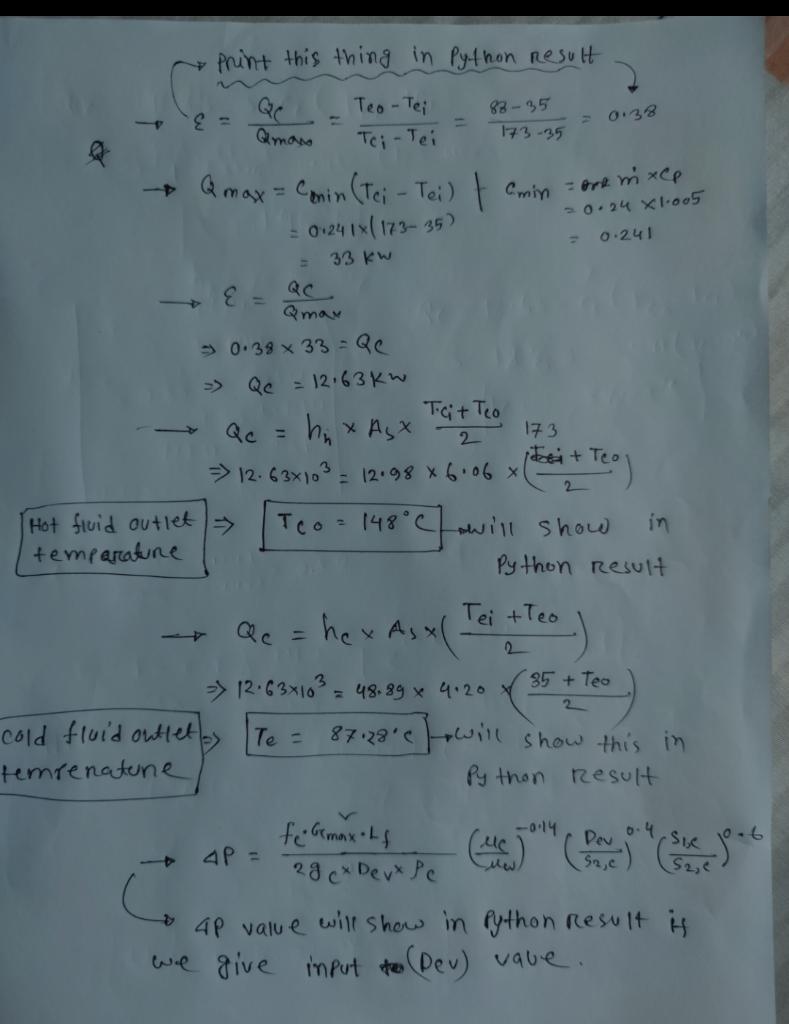 Print this thing in Python result
→ ε = Qc/Qmax = (Teo - Tei)/(Tci - Tei) = (88-35)/(173-35) = 0.38
→ Qmax = Cmin(Tci - Tei) | Cmin = ṁ × Cp
= 0.241×(173-35) = 0.24 × 1.005
= 33 kW = 0.241
→ ε = Qc/Qmax
⇒ 0.38 × 33 = Qc
⇒ Qc = 12.63 kW
→ Qc = hh × As × (Tci + Tco)/2 173
⇒ 12.63×10³ = 12.98 × 6.06 × (( + Tco)/2)
Hot fluid outlet temparature ⇒ Tco = 148°C → will show in
Python result
→ Qc = hc × As × ((Tei + Teo)/2)
⇒ 12.63×10³ = 48.89 × 4.20 × ((35 + Teo)/2)
cold fluid outlet temrenature ⇒ Te = 87.28°C → will show this in
Python result
→ ΔP = (fc·Gcmax·Lf)/(2gc × Dev × Pc) (μc/μw)^-0.14 (Dev/S2,c)^0.4 (S1,c/S2,c)^0.6
→ ΔP value will show in Python result if
we give input (Dev) vaue.